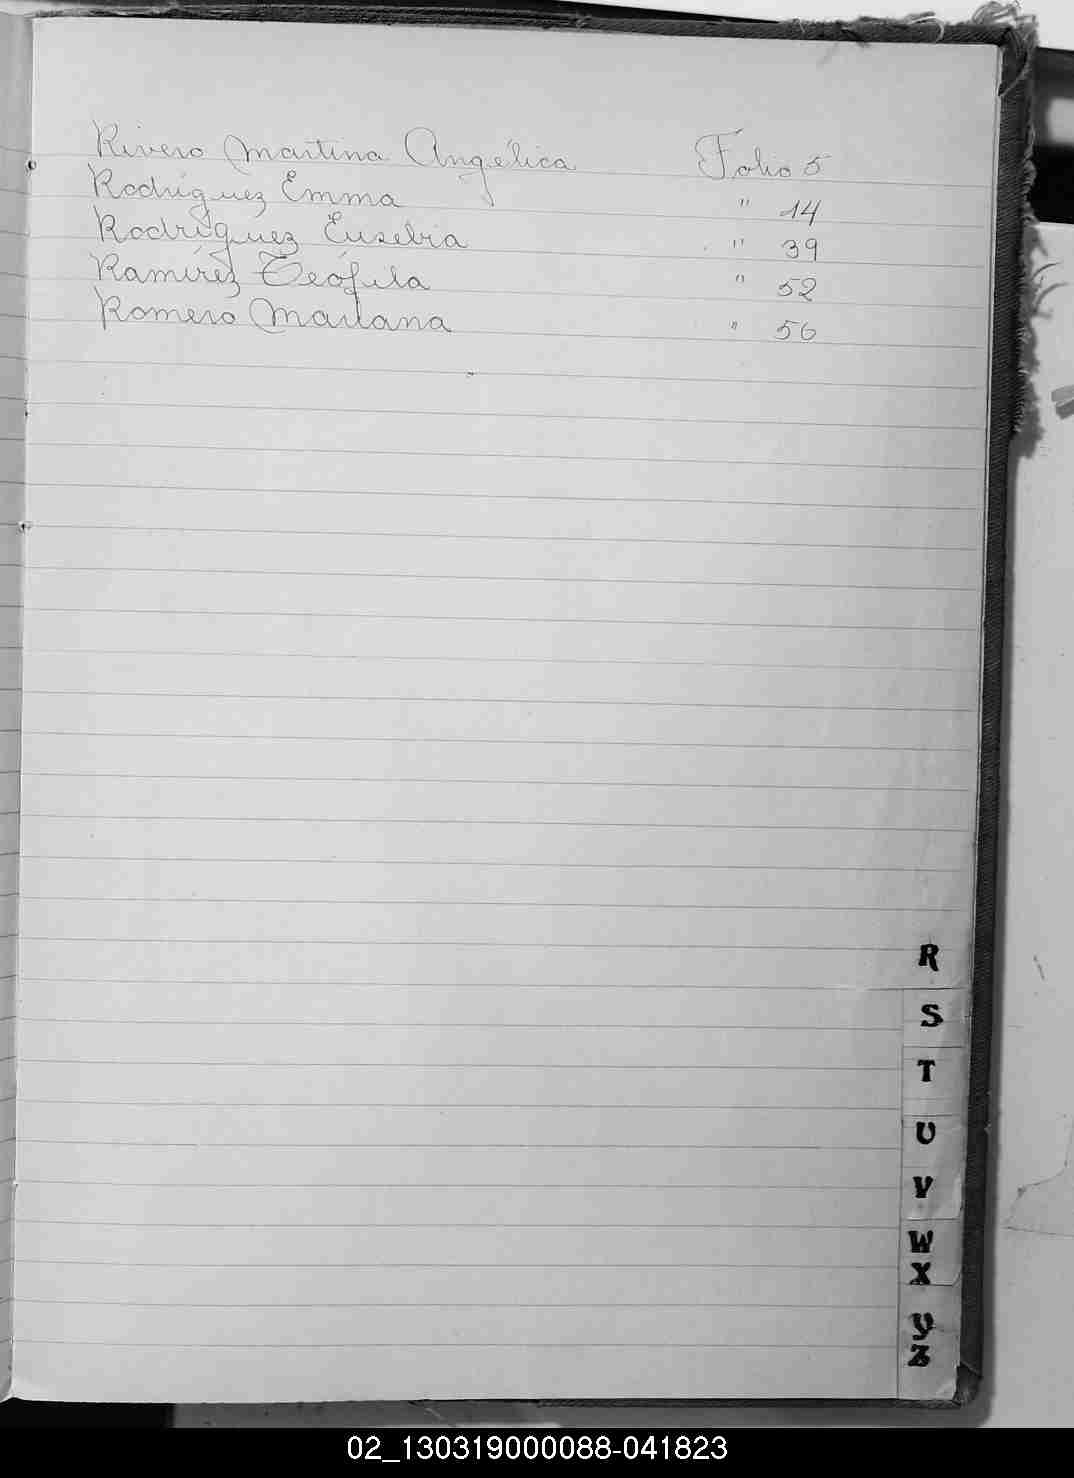 Rivero Martina Angélica Folio 5
Rodríguez Emma " 14
Rodríguez Eusebia " 39
Ramírez Teófila " 52
Romero Mariana " 56
R
S
T
U
V
W
X
Y
Z
02_130319000088-041823